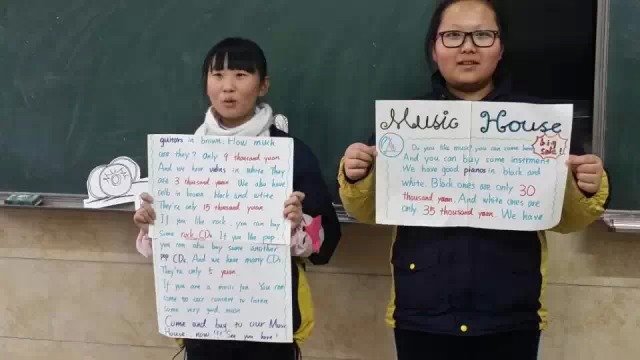 Music House
big
sale!!
Do you like music? you can come here.
And you can buy some insterment
We have good pianos in black and
white. Black ones are only 30
thousand yuan. And white ones are
only 35 thousand yuan. We have
guitars in brown. How much
are they? Only 9 thousand yuan
And we have in white They
are 3 thousand yuan. We also have
cello in brown black and white
They're only 15 thousand yuan
If you like rock. you can buy
some rock CDs. If you like pop
you can also buy some another
pop CDs. And we have many CDs
They're only 5 yuan.
If you are a music fan. You can
come to our concert to listen
some very good music
Come and buy to our Music
House now!!! See you here!